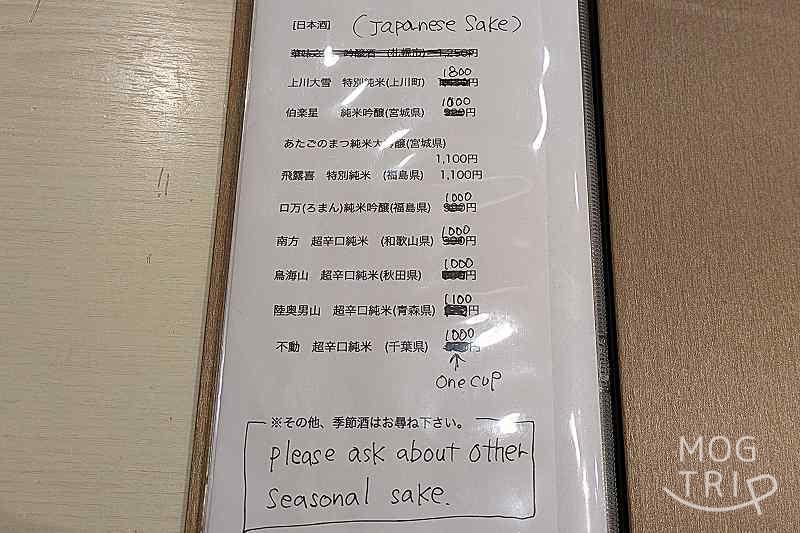 [日本酒] (Japanese Sake)
吟醸酒 (札幌市) 1,250円
上川大雪 特別純米(上川町) 1800円
伯楽星 純米吟醸(宮城県) 1000円
あたごのまつ純米大吟醸(宮城県)
1,100円
飛露喜 特別純米 (福島県) 1,100円
口万(ろまん)純米吟醸(福島県) 1000円
南方 超辛口純米 (和歌山県) 1000円
鳥海山 超辛口純米(秋田県) 1000円
陸奥男山 超辛口純米(青森県) 1100円
不動 超辛口純米 (千葉県) 1000円
↑
one cup
※その他、季節酒はお尋ね下さい。
please ask about other
seasonal sake.
MOG
TRIP